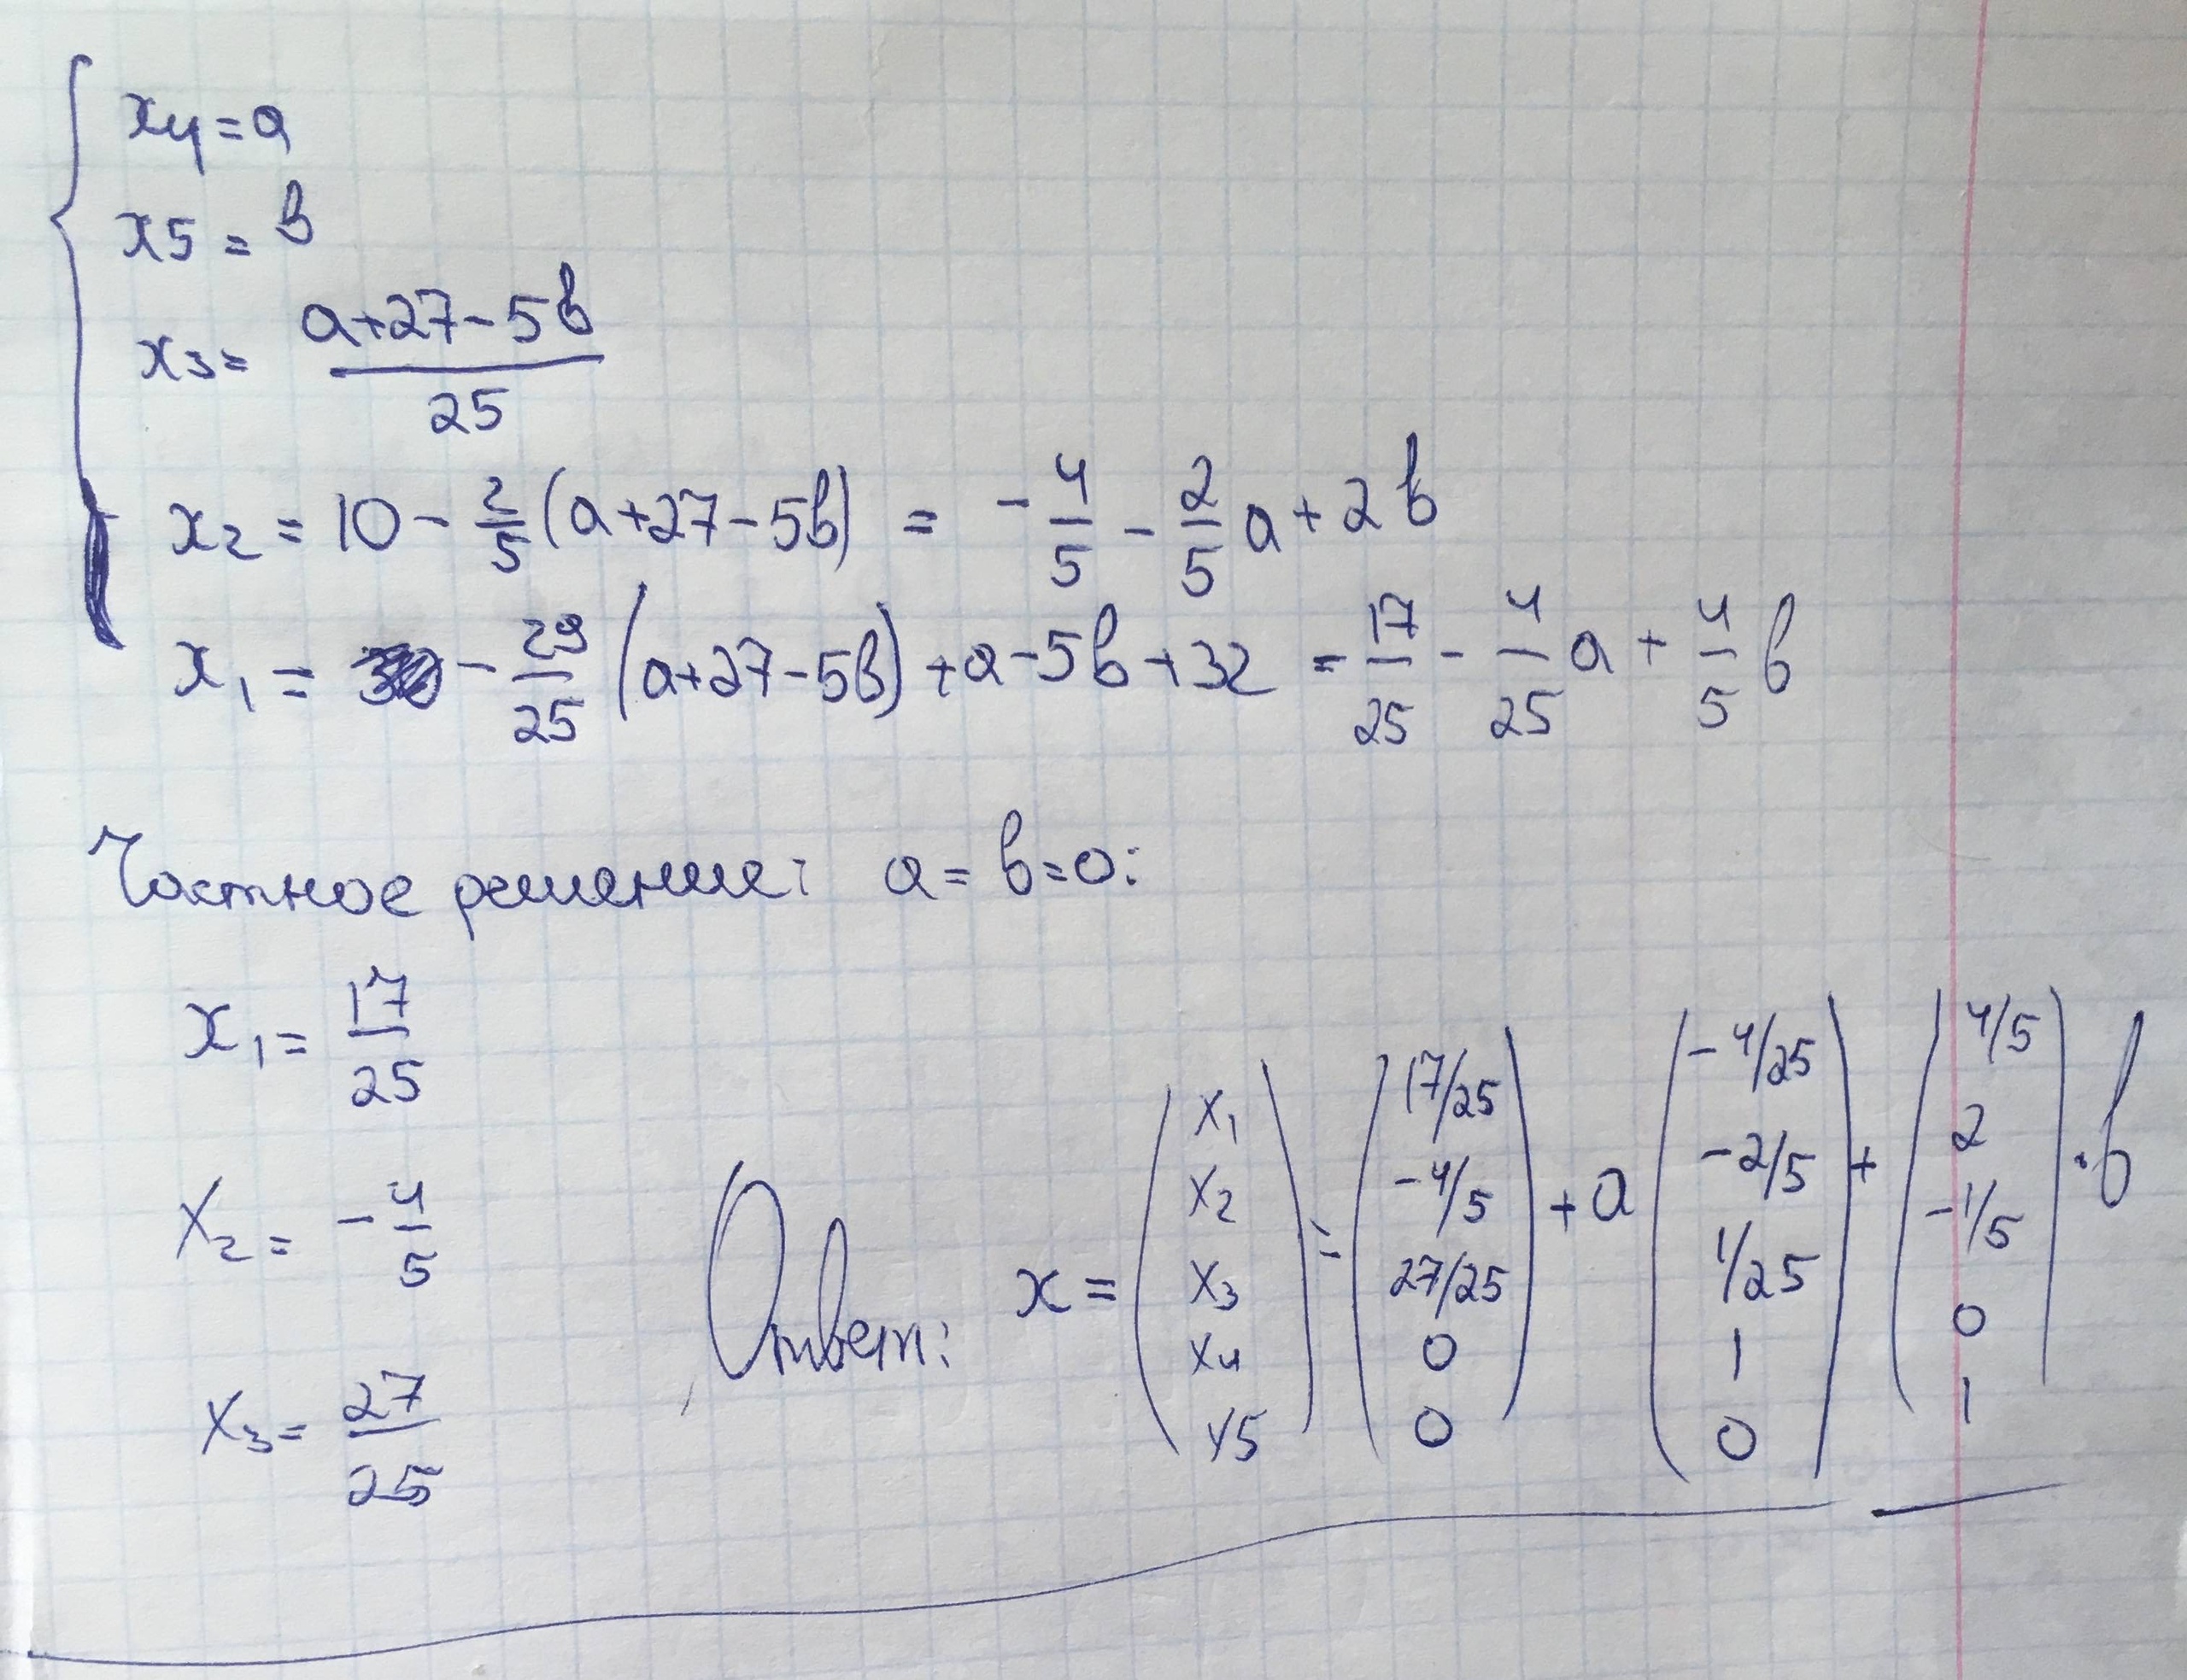 x4 = a
x5 = b
x3 = (a+27-5b)/25
x2 = 10 - 2/5 (a+27-5b) = -4/5 - 2/5 a + 2b
x1 = - 29/25 (a+27-5b) + a - 5b + 32 = 17/25 - 4/25 a + 4/5 b
Частное решение: a = b = 0:
x1 = 17/25
x2 = -4/5
x3 = 27/25
Ответ: x = (x1 x2 x3 x4 x5) = (17/25 -4/5 27/25 0 0) + a (-4/25 -2/5 1/25 1 0) + (4/5 2 -1/5 0 1) · b